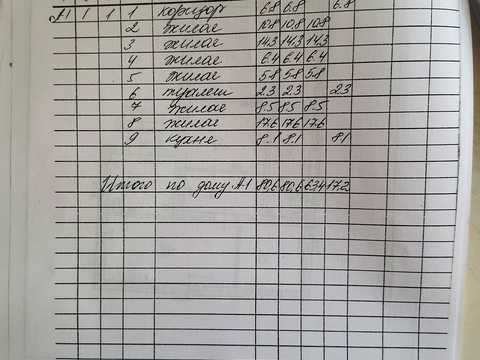 A1 1 1 1 коридор 6.8 6.8 6.8
2 жилае 10.8 10.8 10.8
3 жилае 14.3 14.3 14.3
4 жилае 6.4 6.4 6.4
5 жилае 5.8 5.8 5.8
6 туалет 2.3 2.3 2.3
7 жилае 8.5 8.5 8.5
8 жилае 17.6 17.6 17.6
9 кухне 8.1 8.1 8.1
Итого по дому A1 80,6 80,6 63,4 17,2